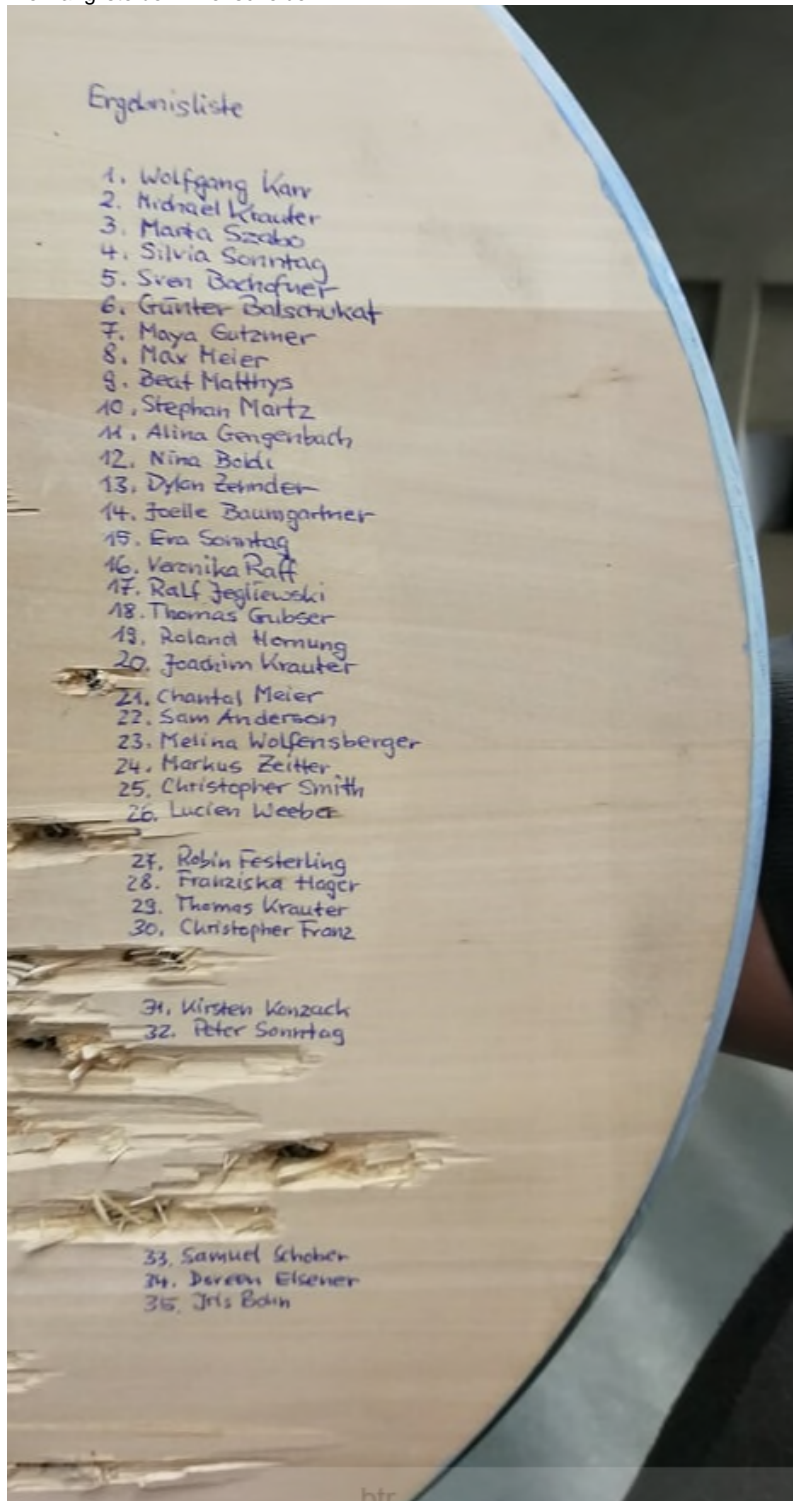 Ergebnisliste
1. Wolfgang Karr
2. Michael Krauter
3. Marta Szabo
4. Silvia Sonntag
5. Sven Bachofner
6. Günter Balschukat
7. Maya Gutzmer
8. Max Meier
9. Beat Matthys
10. Stephan Martz
11. Alina Gengenbach
12. Nina Boldi
13. Dylan Zehnder
14. Joelle Baumgartner
15. Eva Sonntag
16. Veronika Raff
17. Ralf Jegliewski
18. Thomas Gubser
19. Roland Hornung
20. Joachim Krauter
21. Chantal Meier
22. Sam Anderson
23. Melina Wolfensberger
24. Markus Zeitter
25. Christopher Smith
26. Lucien Weeber
27. Robin Festerling
28. Franziska Hager
29. Thomas Krauter
30. Christopher Franz
31. Kirsten Konzack
32. Peter Sonntag
33. Samuel Schober
34. Doreen Elsener
35. Iris Bohn